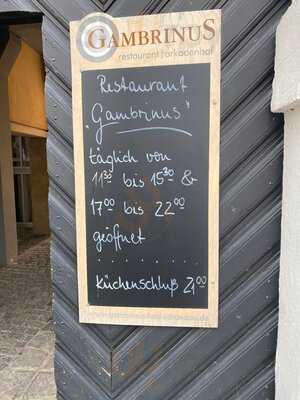 GAMBRINUS
restaurant farkadenhof
Restaurant
„Gambrinus"
täglich von
11³⁰ bis 15³⁰ &
17⁰⁰ bis 22⁰⁰
geöffnet
. . . . . . . .
Küchenschluß 21⁰⁰